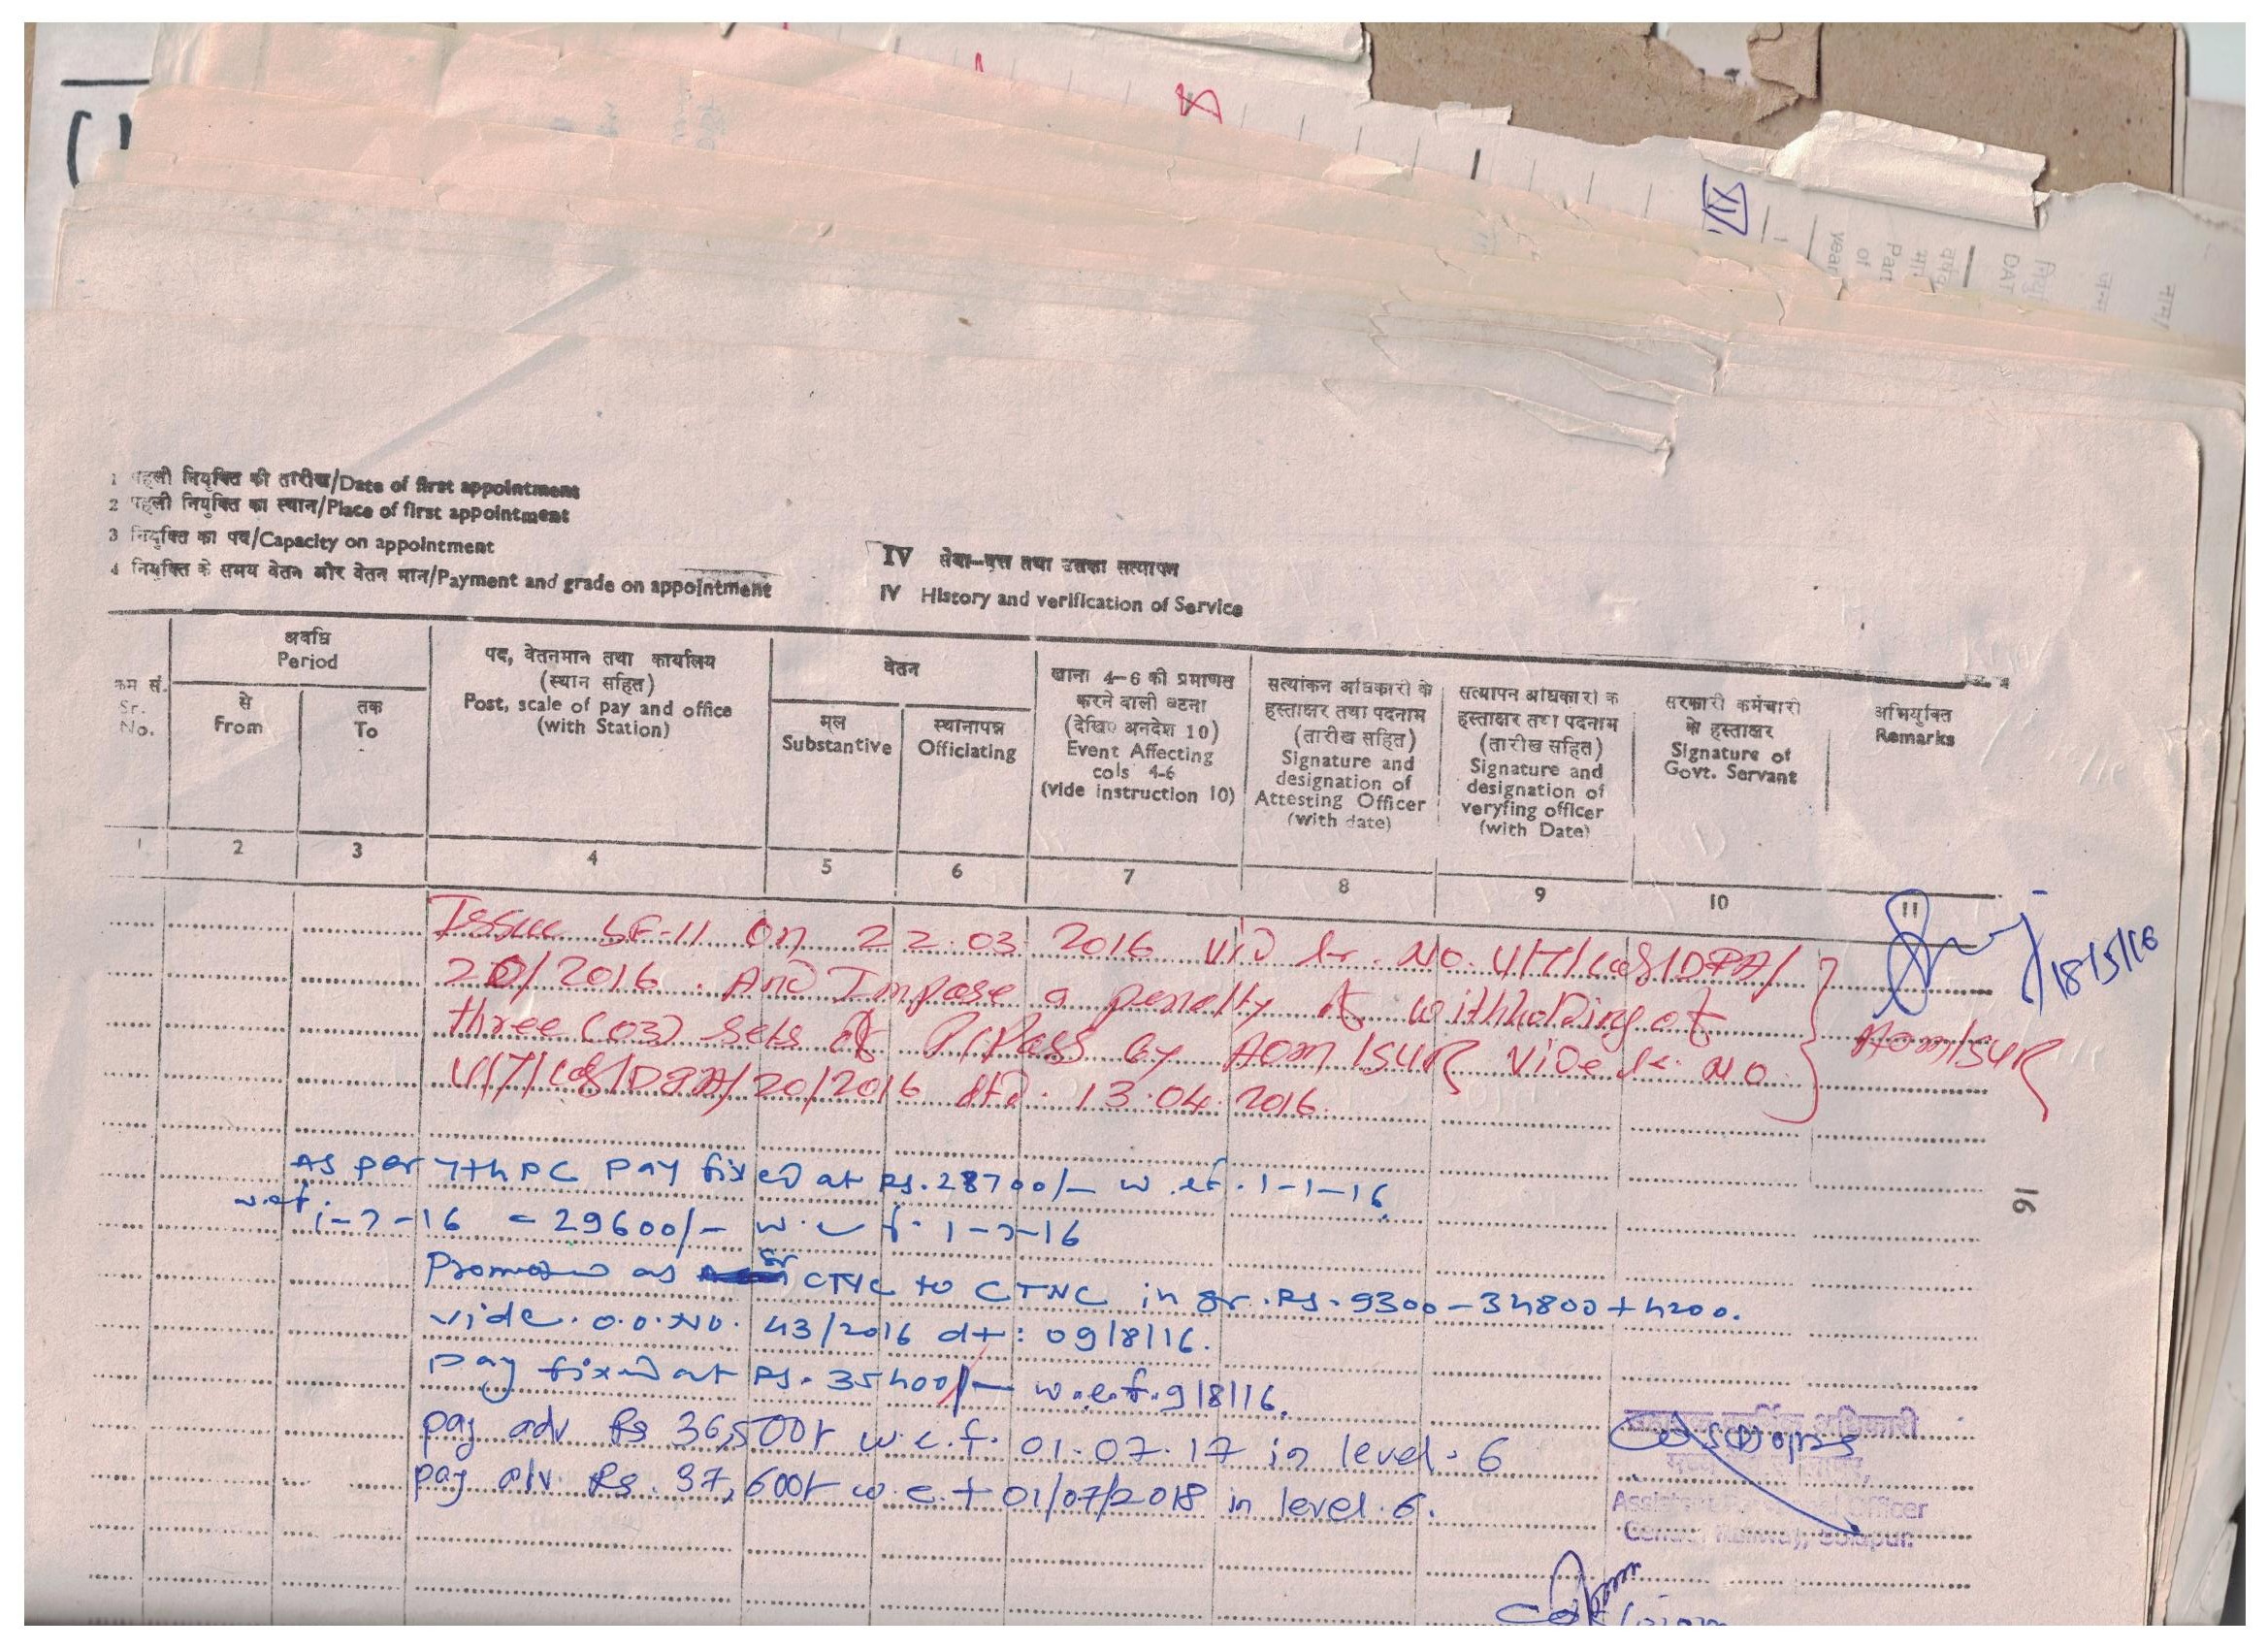 XIV.
1 पहली नियुक्ति की तारीख/Date of first appointment
2 पहली नियुक्ति का स्थान/Place of first appointment
3 नियुक्ति का पद/Capacity on appointment
4 नियुक्ति के समय वेतन और वेतन मान/Payment and grade on appointment
IV सेवा-वृत्त तथा उसका सत्यापन
IV History and verification of Service
क्रम सं. Sr. No.
अवधि Period
से From
तक To
पद, वेतनमान तथा कार्यालय
(स्थान सहित)
Post, scale of pay and office
(with Station)
वेतन
मूल Substantive
स्थानापन्न Officiating
खाना 4-6 की प्रमाणत
करने वाली घटना
(देखिए अनदेश 10)
Event Affecting
cols 4-6
(vide instruction 10)
सत्यांकन अधिकारी के
हस्ताक्षर तथा पदनाम
(तारीख सहित)
Signature and
designation of
Attesting Officer
(with date)
सत्यापन अधिकारी क
हस्ताक्षर तथा पदनाम
(तारीख सहित)
Signature and
designation of
veryfing officer
(with Date)
सरकारी कर्मचारी
के हस्ताक्षर
Signature of
Govt. Servant
अभियुक्ति
Remarks
1 2 3 4 5 6 7 8 9 10 11
Issue SF-11 on 22.03.2016 vid Lr. No. U/T/Cog/DPA/
20/2016. And Impose a penalty of withholding of
three (03) sets of P/Pass by AOM/SUR vide Lr. No
U/T/Cog/D&A/20/2016 dtd. 13.04.2016.
18/5/16
AOM/SUR
As per 7th PC Pay fixed at Rs. 28700/- w.ef. 1-1-16.
w.ef. 1-7-16 = 29600/- w.e.f. 1-7-16
Promoted as Sr CTNC to CTNC in gr. Rs. 9300-34800+4200.
vide. O.O. No. 43/2016 dt: 09/8/16.
Pay fixed at Rs. 35400/- w.e.f. 9/8/16.
pay adv Rs 36,500/- w.e.f. 01.07.17 in level. 6
pay adv. Rs. 37,600/- w.e.f 01/07/2018 in level. 6.
Assistant Personnel Officer
Central Railway, Solapur.
16